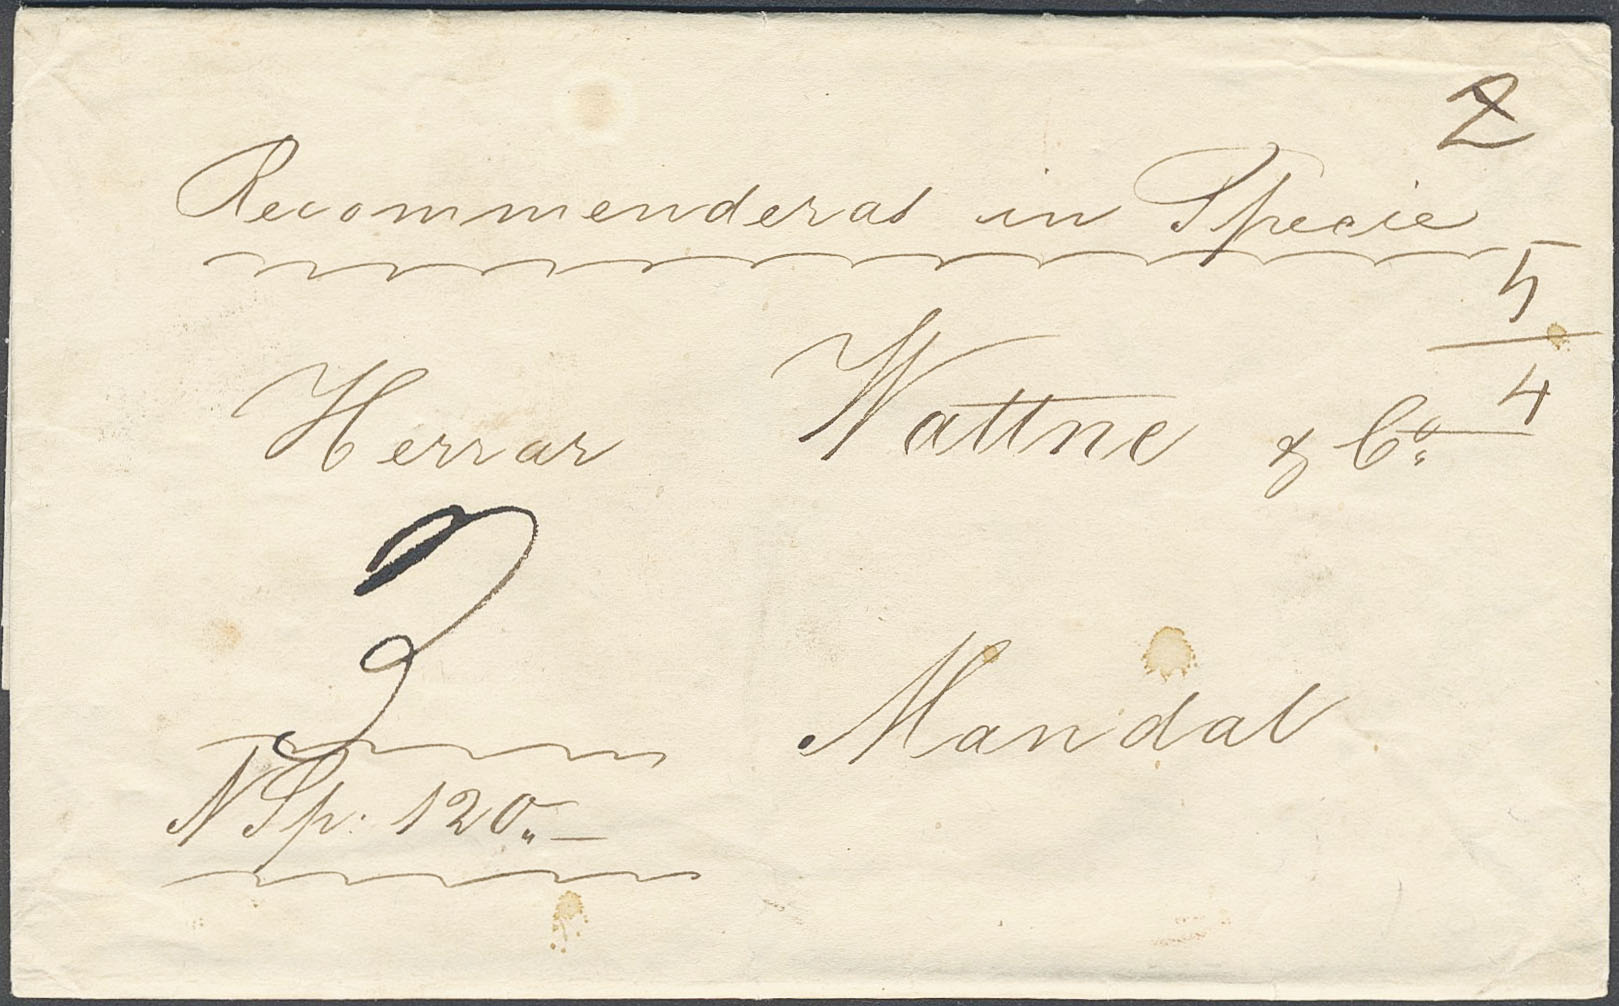 2
Recommenderas in Specie
5
4
Herrar Wattne & Co.
3
Mandal
N Sp: 120„—